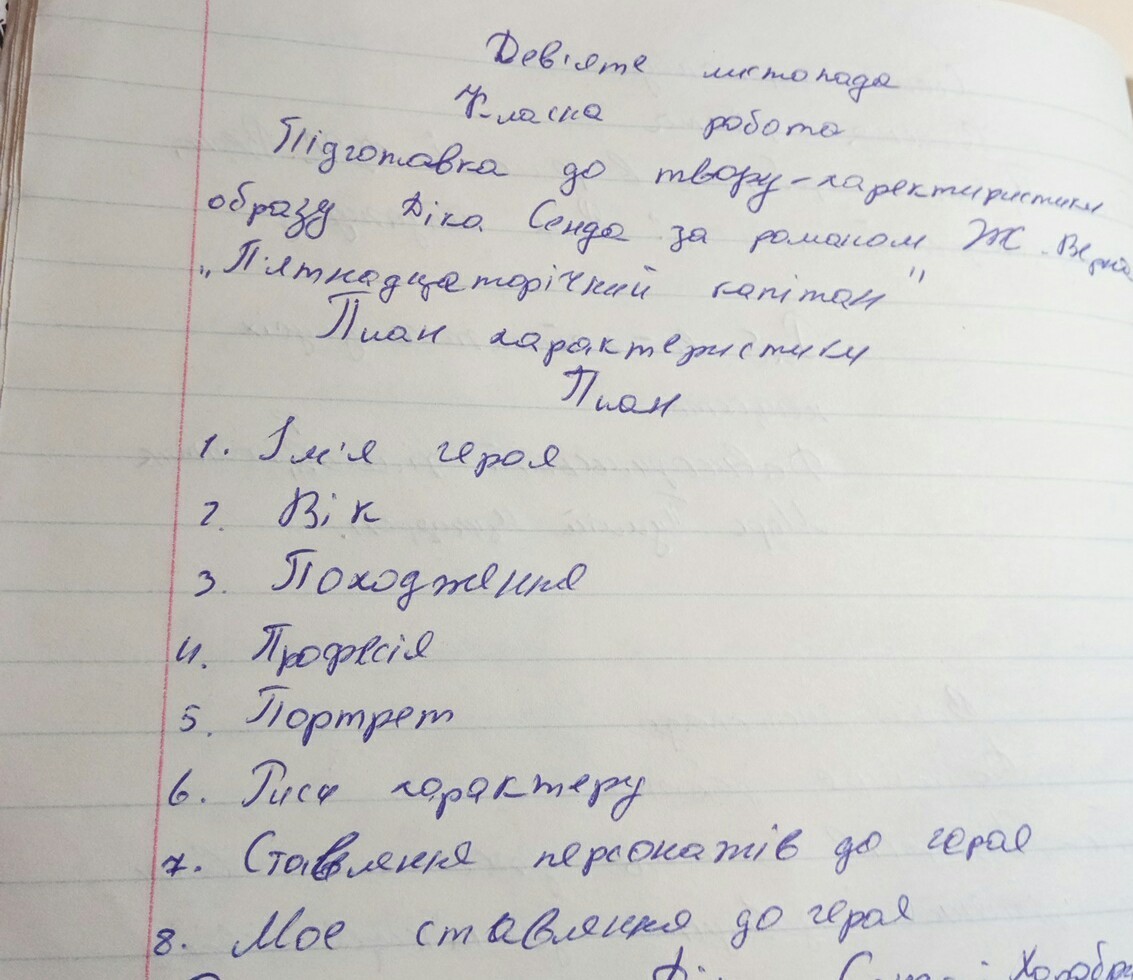 Дев'яте листопада
Класна робота
Підготавка до твору-характиристики
образу Діка Сенда за романом Ж. Верна
"П'ятнадцаторічний капітан"
План характеристики
План
1. Ім'я героя
2. Вік
3. Походження
4. Професія
5. Портрет
6. Риси характеру
7. Ставлення персонажів до героя
8. Моє ставлення до героя